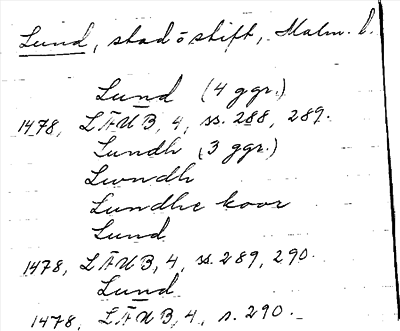 Lund, stad o stift, Malm. l.
Lund (4 ggr.)
1478, LÄUB, 4, ss. 288, 289.
Lundh (3 ggr.)
Lwndh
Lundhe koor
Lund
1478, LÄUB, 4, ss. 289, 290.
Lund
1478, LÄUB, 4, s. 290.